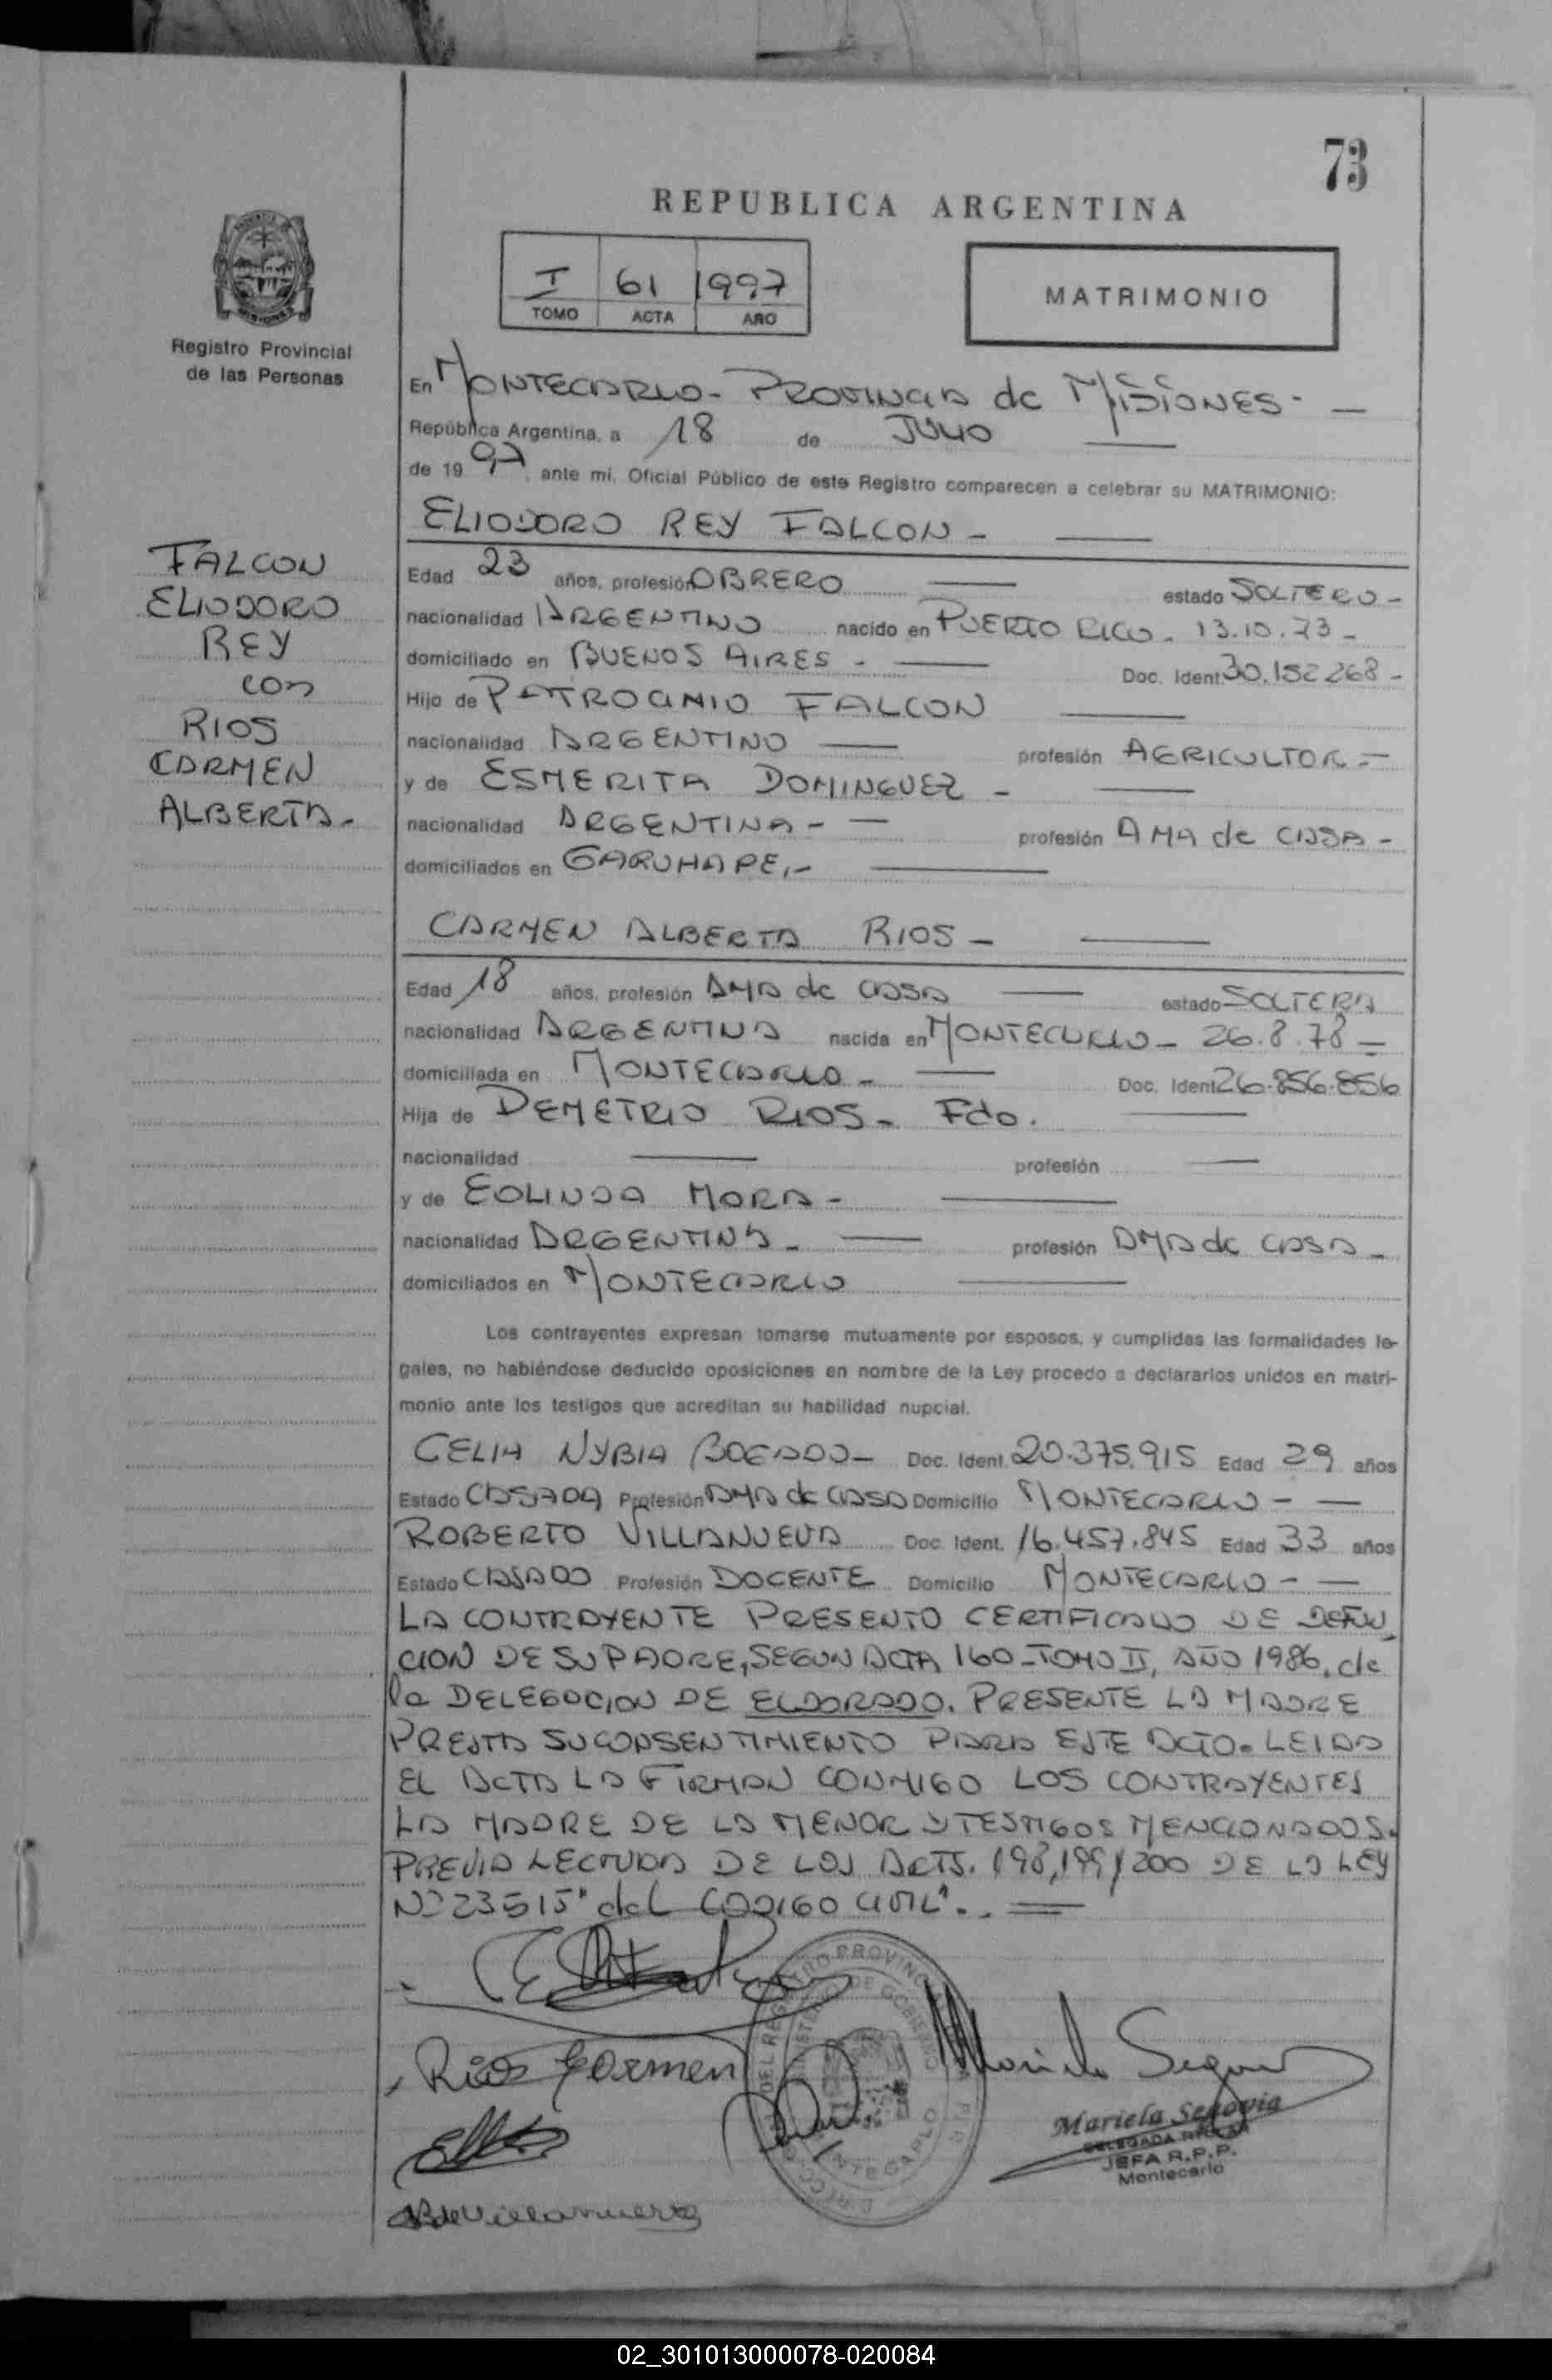 73
REPUBLICA ARGENTINA
I 61 1997
TOMO ACTA AÑO
MATRIMONIO
Registro Provincial
de las Personas
FALCON
ELIODORO
REY
con
RIOS
CARMEN
ALBERTA.
En MONTECARLO - PROVINCIA de MISIONES - —
República Argentina, a 18 de JULIO —
de 1997, ante mí, Oficial Público de este Registro comparecen a celebrar su MATRIMONIO:
ELIODORO REY FALCON - —
Edad 23 años, profesión OBRERO — estado SOLTERO -
nacionalidad ARGENTINO nacido en PUERTO RICO - 13.10.73 -
domiciliado en BUENOS AIRES - — Doc. Ident. 30.152.268 -
Hijo de PATROCINIO FALCON —
nacionalidad ARGENTINO — profesión AGRICULTOR. -
y de ESMERITA DOMINGUEZ - —
nacionalidad ARGENTINA - — profesión AMA de CASA -
domiciliados en GARUHAPE, - —
CARMEN ALBERTA RIOS - —
Edad 18 años, profesión AMA de CASA — estado SOLTERA
nacionalidad ARGENTINA nacida en MONTECARLO - 26.8.78 -
domiciliada en MONTECARLO - — Doc. Ident. 26.856.856
Hija de DEMETRIO RIOS - Fdo. —
nacionalidad — profesión —
y de EOLINDA MORA - —
nacionalidad ARGENTINA - — profesión AMA de CASA -
domiciliados en MONTECARLO —
Los contrayentes expresan tomarse mutuamente por esposos, y cumplidas las formalidades le-
gales, no habiéndose deducido oposiciones en nombre de la Ley procedo a declararlos unidos en matri-
monio ante los testigos que acreditan su habilidad nupcial.
CELIA NYBIA BOGADO - Doc. Ident. 20.375.915 Edad 29 años
Estado CASADA Profesión AMA de CASA Domicilio MONTECARLO - —
ROBERTO VILLANUEVA Doc. Ident. 16.457.845 Edad 33 años
Estado CASADO Profesión DOCENTE Domicilio MONTECARLO - —
LA CONTRAYENTE PRESENTO CERTIFICADO DE DEFUN
CION DE SU PADRE, SEGUN ACTA 160 - TOMO II, AÑO 1986, de
la DELEGACION DE ELDORADO. PRESENTE LA MADRE
PRESTA SU CONSENTIMIENTO PARA ESTE ACTO. LEIDA
EL ACTA LA FIRMAN CONMIGO LOS CONTRAYENTES
LA MADRE DE LA MENOR Y TESTIGOS MENCIONADOS.
PREVIA LECTURA DE LOS ARTS. 198, 199 y 200 DE LA LEY
Nº 23515" del CODIGO CIVIL". . =
Rios Carmen
Mariela Segovia
Mariela Segovia
DELEGADA TITULAR
JEFA R.P.P.
Montecarlo
B de Villanueva
02_301013000078-020084